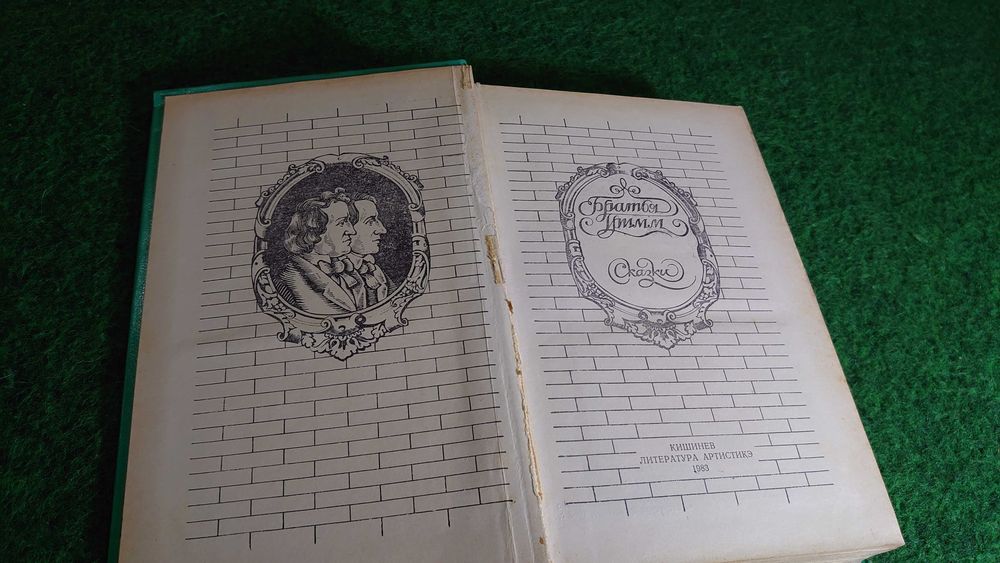 Братья
Гримм
Сказки
КИШИНЕВ
ЛИТЕРАТУРА АРТИСТИКЭ
1983